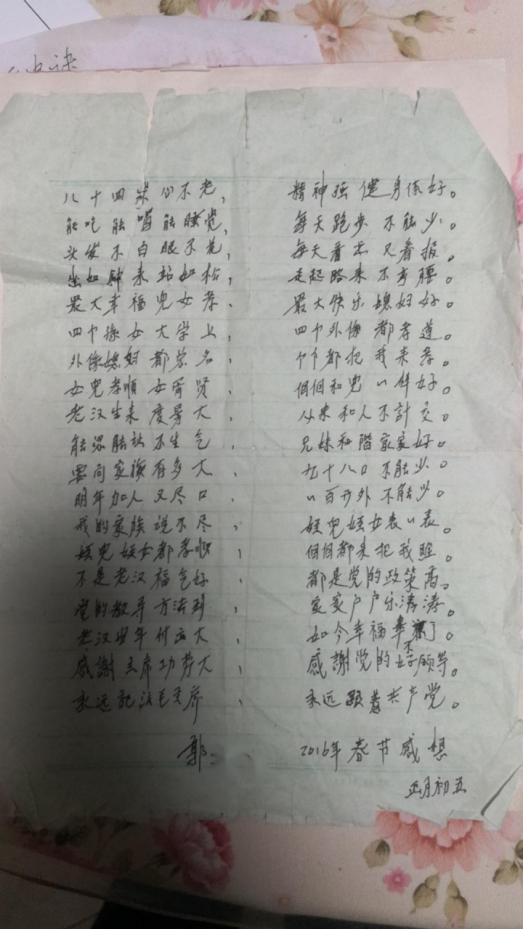 八十四岁心不老， 精神强健身体好。
能吃能喝能睡觉， 每天跑步不能少。
头发不白眼不花， 每天看书又看报。
坐如钟来站如松， 走起路来不弯腰。
最大幸福儿女孝， 最大快乐媳妇好。
四个孙女大学上， 四个外孙都孝道。
外孙媳妇都 名， 个个都把我来孝。
女儿孝順女胥贤 個個和儿一样好。
老汉生来度量大 从来和人不計交。
能深能認不生气 兄妹和階家家好。
要问家族有多大， 九十八口不能少。
明年加人又尽口 一百开外不能少。
我的家族说不尽 姪儿姪女表一表。
姪儿姪女都孝順， 個個都来把我 。
不是老汉福气好 都是党的政策高。
党的教导方法到 家家户户乐濤濤。
老汉 年 大 如今幸福幸 了。
感謝主席功劳大 感謝党的好領导。
永远記住毛主席 永远跟着共产党。
郭 2016年春节感想
正月初五